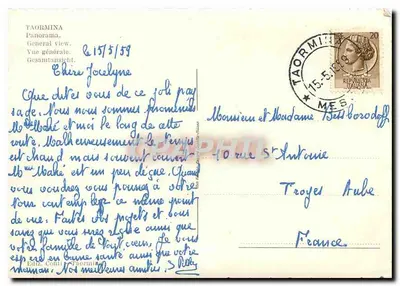 TAORMINA
Panorama.
General view.
Vue générale.
Gesamtansicht.
le 15/5/59
Chère Jocelyne
Que dites vous de ce joli pay
sage. Nous nous sommes promenées
Mme Mahé et moi le long de cette
route. Malheureusement le temps
est chaud mais souvent couvert
Mme Mahé est un peu déçue. Quand
vous voudrez vous pourrez à votre
tour contempler ce même point
de vue. Faites des projets et sous
que vous me
votre famille de tout cœur. Je vous
espère en bonne santé ainsi que votre
maman. Nos meilleures amitiés. J.
Ediz. Taormina
TAORMINA
15-5-59
MES
20
Monsieur et Madame
10 rue St Antoine
Troyes Aube
France